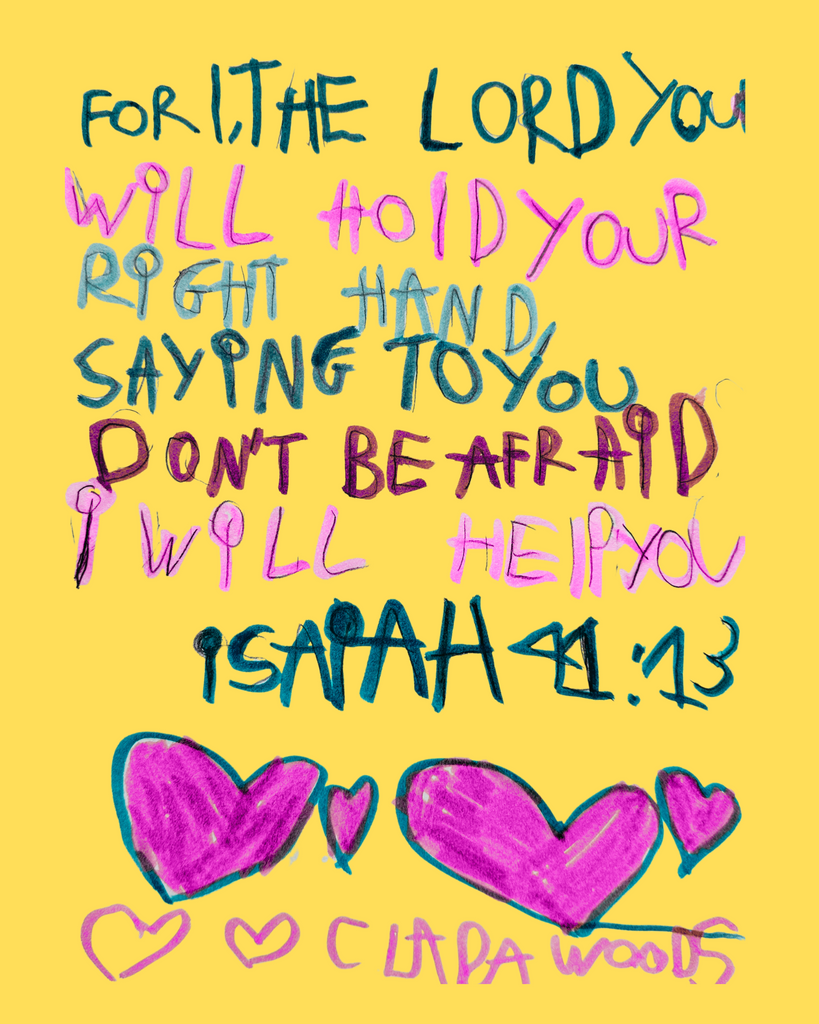 FOR I, THE LORD YOU
WiLL HOlD YOUR
RiGHT HAND,
SAYiNG TO YOU
DON'T BE AFRAiD
i WiLL HElP YOU
iSAiAH 41:13
ClARA WOODS